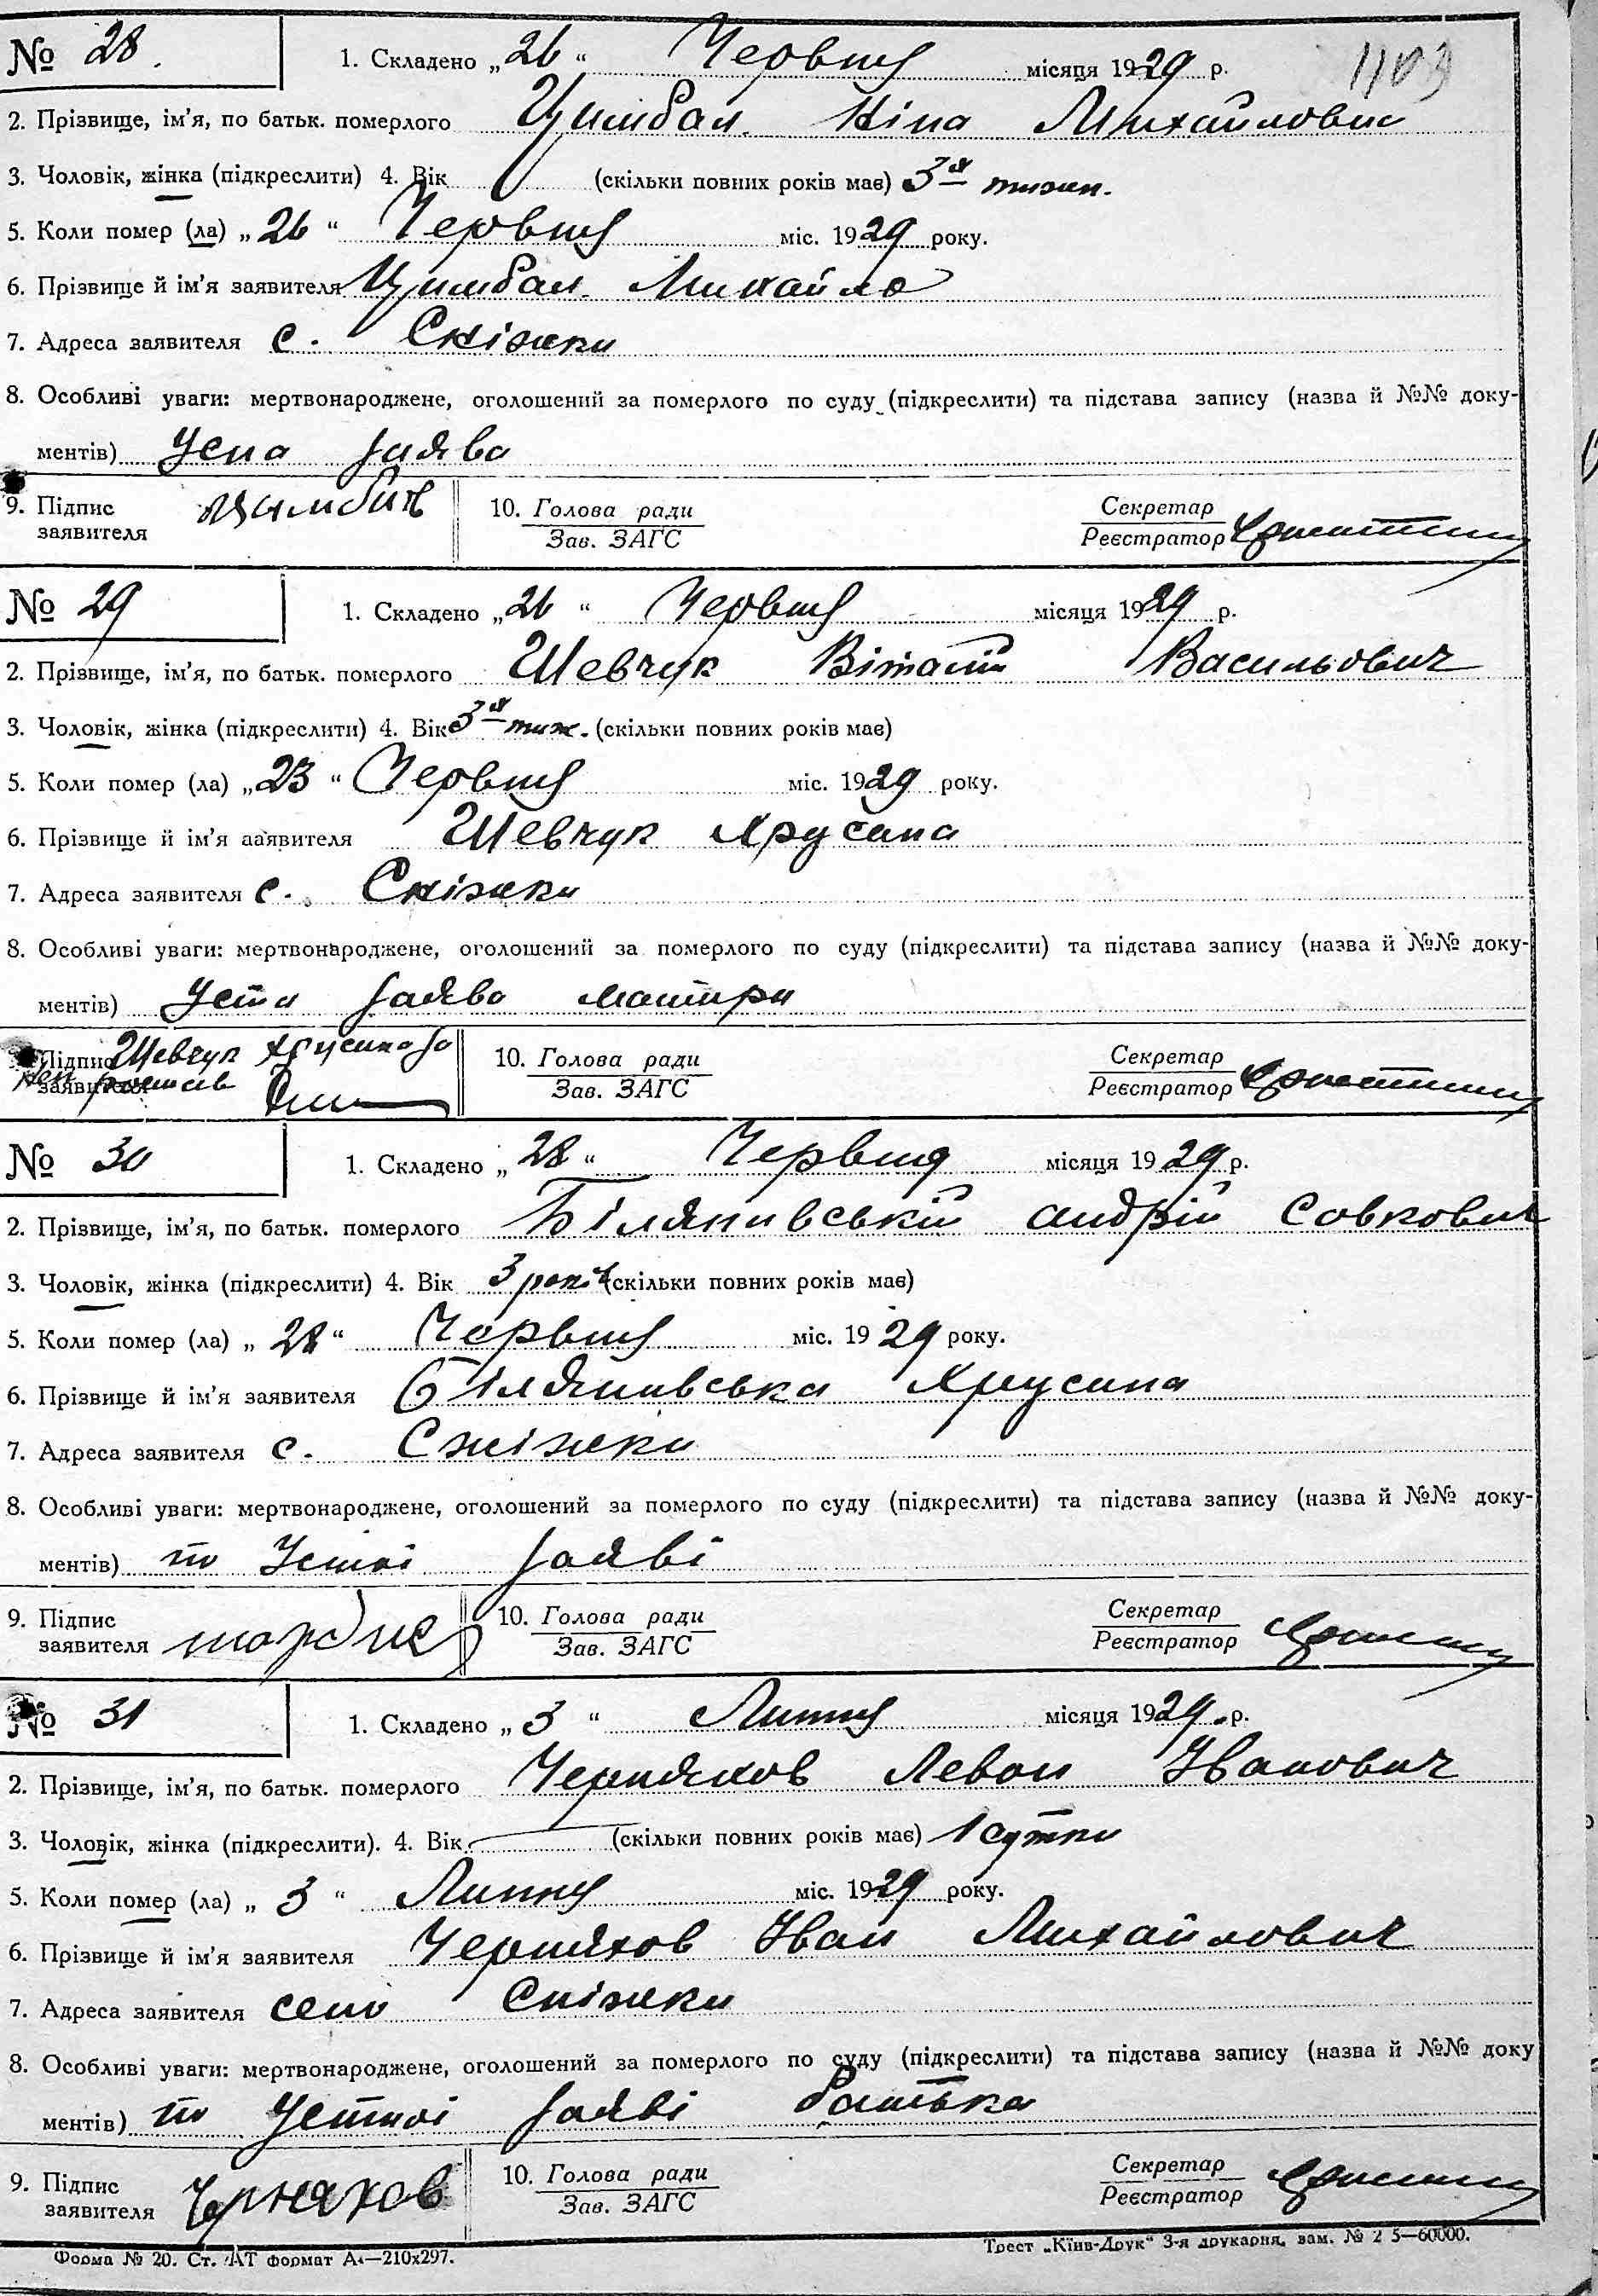 № 28. 1. Складено „26“ Червня місяця 1929 р. 1103
2. Прізвище, ім'я, по батьк. померлого Цимбал Ніна Михайловна
3. Чоловік, жінка (підкреслити) 4. Вік (скільки повних років має) 3 я тижн.
5. Коли помер (ла) „26“ Червня міс. 1929 року.
6. Прізвище й ім'я заявителя Цимбал Михайло
7. Адреса заявителя с. Сніжки
8. Особливі уваги: мертвонароджене, оголошений за померлого по суду (підкреслити) та підстава запису (назва й №№ доку-
ментів) Усна заява
9. Підпис заявителя Цымбал 10. Голова ради Зав. ЗАГС Секретар Реєстратор
№ 29 1. Складено „26“ Червня місяця 1929 р.
2. Прізвище, ім'я, по батьк. померлого Шевчук Віталій Васильович
3. Чоловік, жінка (підкреслити) 4. Вік 3 я тиж. (скільки повних років має)
5. Коли помер (ла) „23“ Червня міс. 1929 року.
6. Прізвище й ім'я заявителя Шевчук Хрусана
7. Адреса заявителя с. Сніжки
8. Особливі уваги: мертвонароджене, оголошений за померлого по суду (підкреслити) та підстава запису (назва й №№ доку-
ментів) Устн заява матири
Підпис заявителя Шевчук 10. Голова ради Зав. ЗАГС Секретар Реєстратор
№ 30 1. Складено „28“ Червня місяця 1929 р.
2. Прізвище, ім'я, по батьк. померлого Білянивській Андрій Савкович
3. Чоловік, жінка (підкреслити) 4. Вік 3 років (скільки повних років має)
5. Коли помер (ла) „28“ Червня міс. 1929 року.
6. Прізвище й ім'я заявителя Білянивська Хрусина
7. Адреса заявителя с. Сніжки
8. Особливі уваги: мертвонароджене, оголошений за померлого по суду (підкреслити) та підстава запису (назва й №№ доку-
ментів) по Устної заяві
9. Підпис заявителя 10. Голова ради Зав. ЗАГС Секретар Реєстратор
№ 31 1. Складено „3“ Липня місяця 1929. р.
2. Прізвище, ім'я, по батьк. померлого Черняхов Левон Іванович
3. Чоловік, жінка (підкреслити). 4. Вік (скільки повних років має) 1 сутки
5. Коли помер (ла) „3“ Липня міс. 1929 року.
6. Прізвище й ім'я заявителя Черняхов Іван Михайлович
7. Адреса заявителя село Сніжки
8. Особливі уваги: мертвонароджене, оголошений за померлого по суду (підкреслити) та підстава запису (назва й №№ доку
ментів) по Устної заяві батька
9. Підпис заявителя Черняхов 10. Голова ради Зав. ЗАГС Секретар Реєстратор
Форма № 20. Ст. АТ формат А4—210х297. Трест „Київ-Друк“ 3-я друкарня, зам. № 2 5—60000.